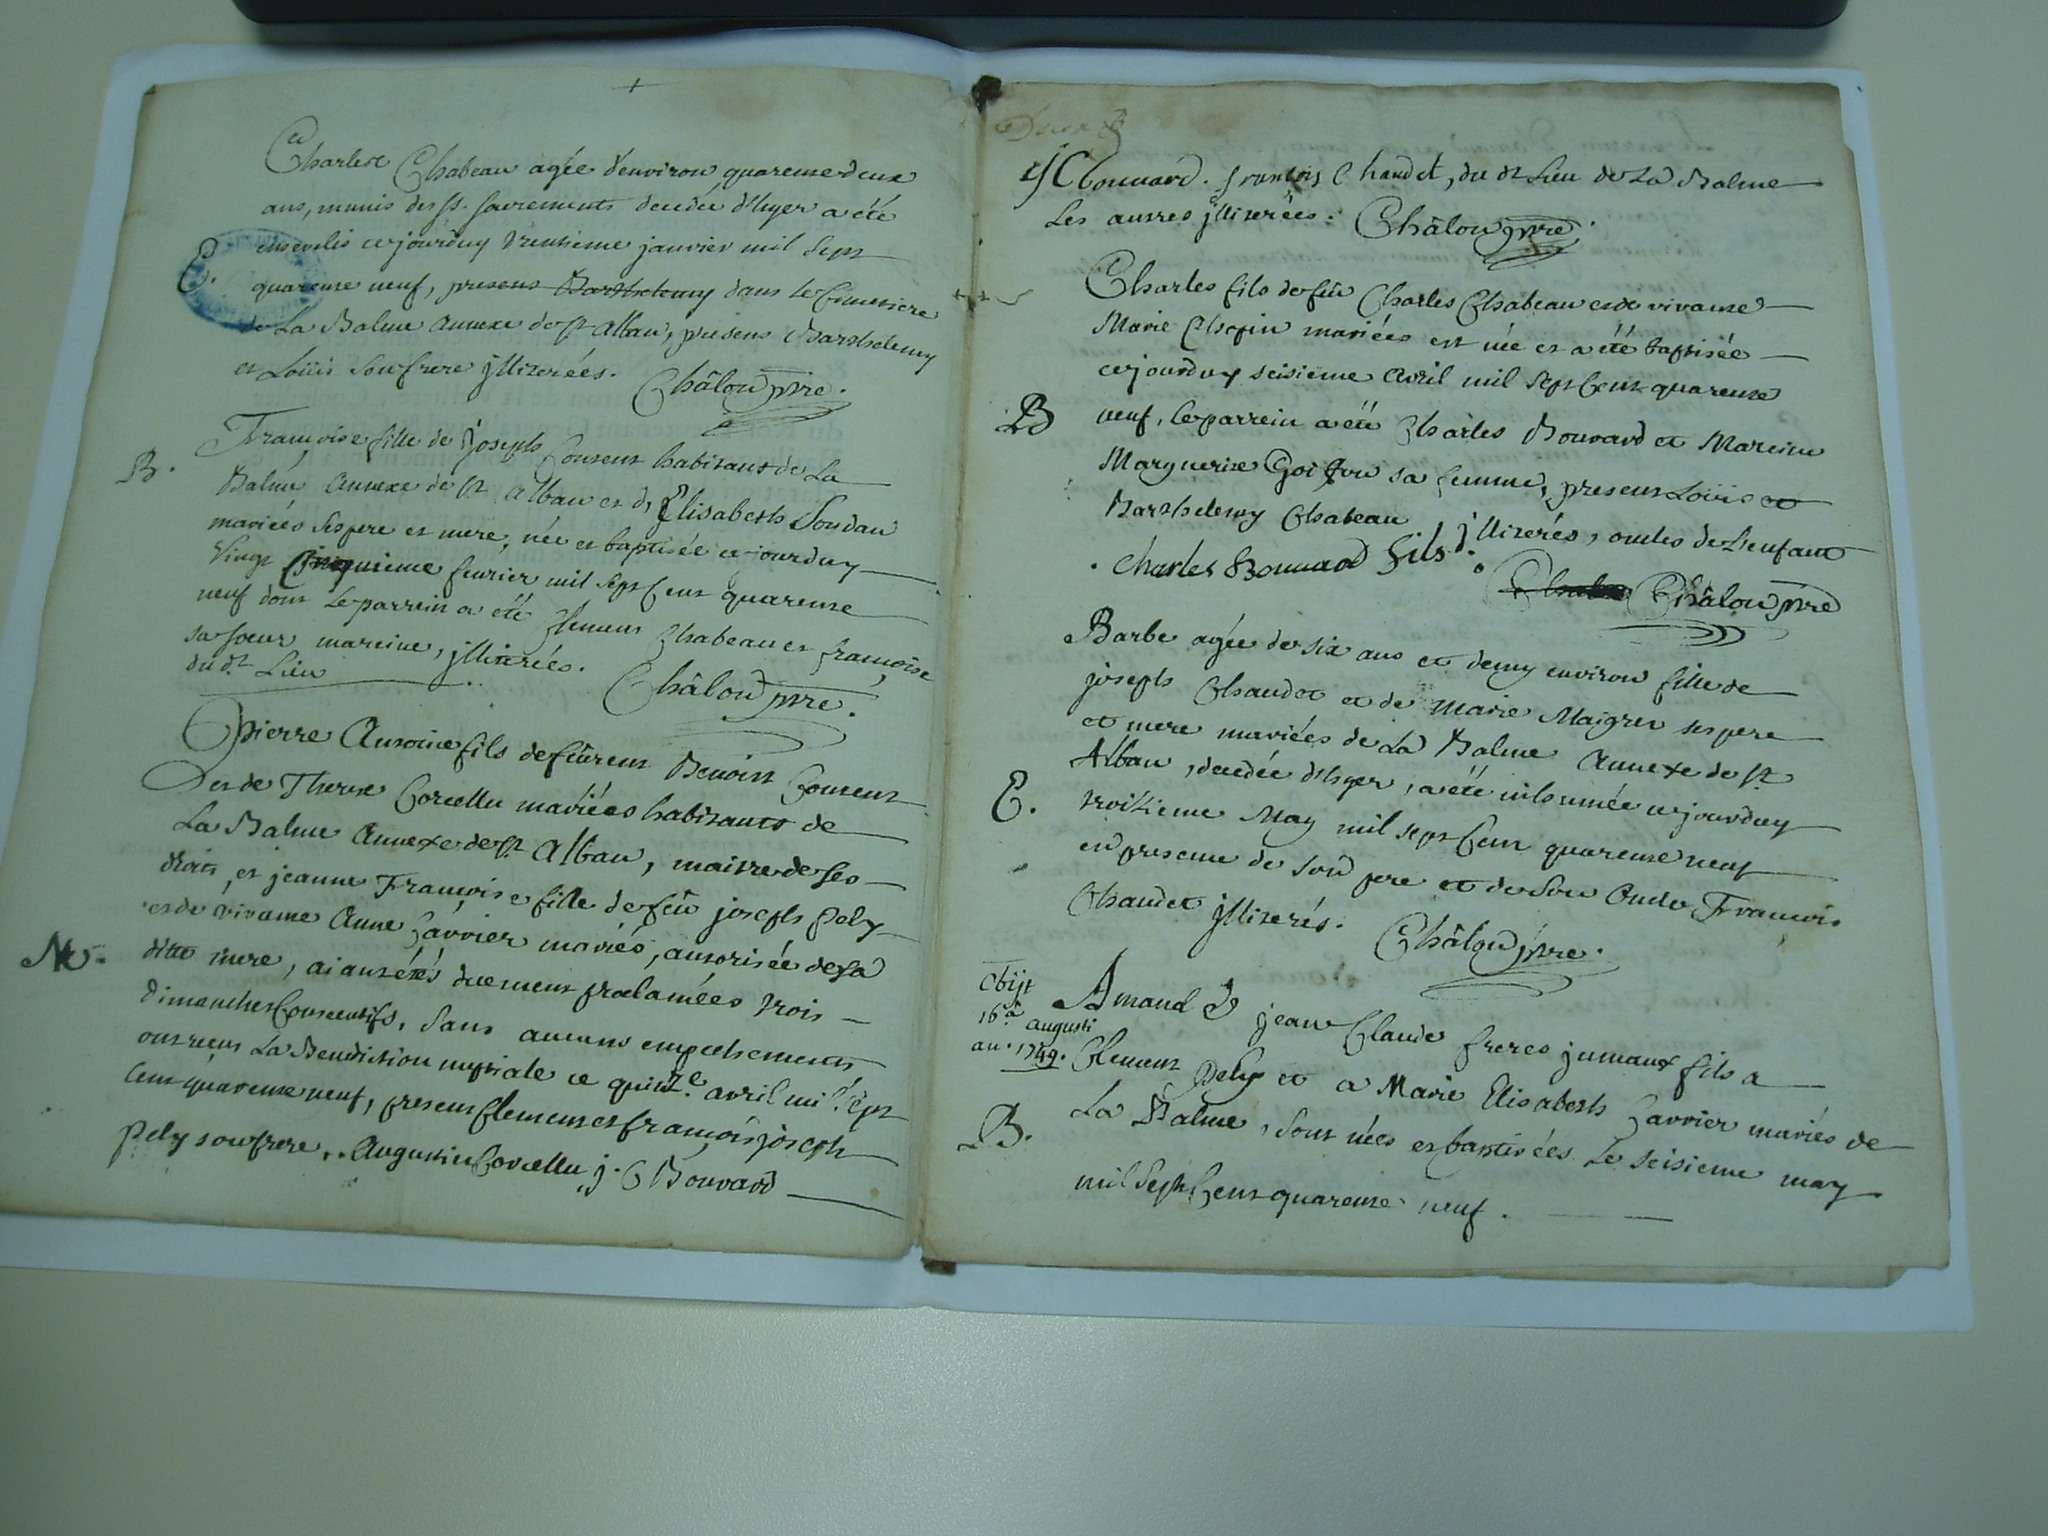 Charles Chabeau agée d'environ quarente deux
ans, munis des sts. sacrements decedée d'hyer a été
ensevelis cejourduy trentieme janvier mil sept
E. quarente neuf, presens Barthelemy dans le cimetiere
de La Balme annexe de st Alban, presens Barthelemy
et Loüis son frere illiterées. Châlon ptre.
Françoise fille de Joseph Courent habitant de La
B. Balme annexe de st Alban et d'Elisabeth Soudan
mariées ses pere et mere, née et baptisée cejourduy
vingt cinquieme fevrier mil sept cent quarente
neuf dont le parrein a été Clement Chabeau et françoise
sa soeur mareine, illiterées.
du dt. Lieu Châlon ptre.
pierre Antoine fils de feu Benoist Courent
et de Therese Corcellu mariées habitants de
La Balme annexe de st Alban, maitre de ses
droits, et jeanne Françoise fille de feû joseph Pely
et de vivante Anne Carrier mariés, autorisée de sa
N. ditte mere, aiant étés duement proclamées trois
dimanches consecutifs, sans aucuns empechements
ont reçus La Benediction nuptiale ce quinze. avril mil sept
cent quarente neuf, presens Clement et françois joseph
Pely son frere, Augustin Corcellu, j. C Bouvard
JC bouuard. francois Chaudet, du dt Lieu de La Balme
Les autres illiterées: Châlon ptre.
Charles fils de feû Charles Chabeau et de vivante
Marie Chapin mariées est née et a été baptisée
cejourduy seisieme avril mil sept cent quarente
B neuf, le parrein a été Charles Bouvard et Mareine
Marguerite Goiffon sa femme, presens Loüis et
Barthelemy Chabeau illiterés, oncles de l'enfant
. charles Bouuard fils. Châlon ptre
Barbe agée de six ans et demy environ fille de
joseph Chaudet et de Marie Maigret ses pere
et mere mariées de La Balme annexe de st
Alban, decedée d'hyer, a été inhumée cejourduy
E. troizieme May mil sept cent quarente neuf
en presence de son pere et de son oncle François
Chaudet illiterés. Châlon ptre.
obijt
16a augusti
an. 1749.
Amand & jean Claude freres jumaux fils a
Clement Pely et a Marie Elisabeth Carrier mariés de
B. La Balme, sont nées et baptisées le seisieme may
mil sept cent quarente neuf.